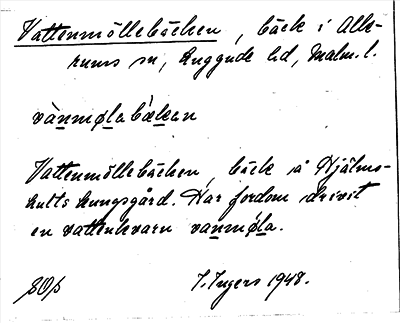 Vattenmöllebäcken, bäck i Allе-
rums sn, Luggude hd, Malm. l.
vànmøla bǽkan
Vattenmöllebäcken, bäck å Hjälms-
hults kungsgård. Har fordom drivit
en vattenkvarn vanmøla.
I. Ingers 1948.